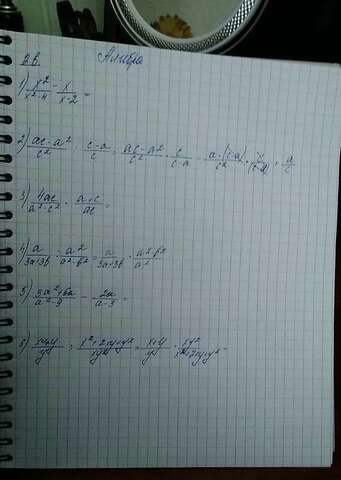 2 в.
Алгебра
1) x²/(x²-4) - x/(x-2) =
2) (ac-a²)/c² : (c-a)/c = (ac-a²)/c² · c/(c-a) = a·(c-a)/c² · c/(c-a) = a/c
3) 4ac/(a²-c²) · (a+c)/ac =
4) a/(3a+3b) : a²/(a²-b²) = a/(3a+3b) · (a²-b²)/a²
5) (3a²+6a)/(a²-9) - 2a/(a-3) =
6) (x+y)/y : (x²+2xy+y²)/xy² = (x+y)/y · xy²/(x²+2xy+y²) =